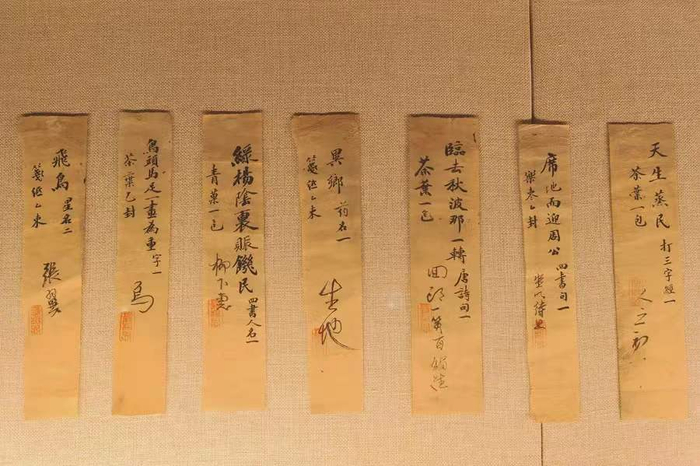 天生蒸民 打三字經一
茶葉一包
人之初
席地而迎周公 四書句一
乙封
坐以待旦
臨去秋波那一轉 唐詩句一
茶葉一包
回頭一笑百媚生
異鄉 药名一
箋紙乙束
生地
綠楊陰裏賑饑民 四書人名一
青菓一包
柳下惠
鳥頭馬足一畫為重 字一
茶葉乙封
飛鳥 星名二
箋紙乙束
張翼